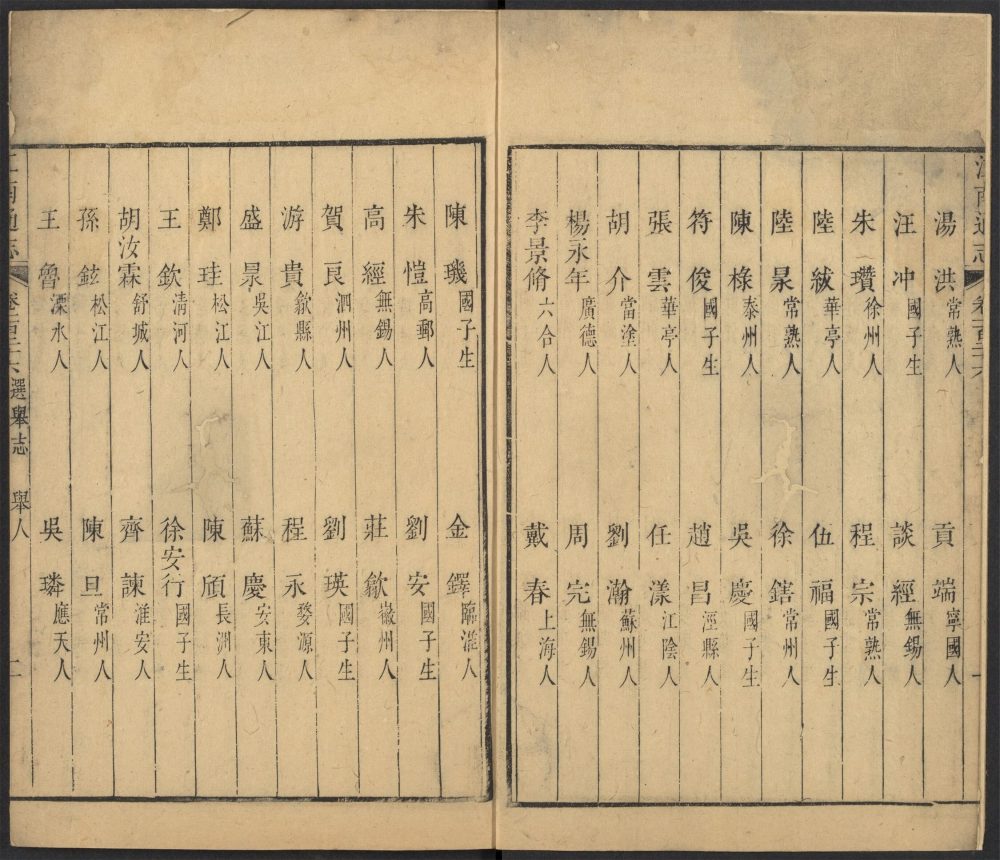 江南通志 卷一百二十六
湯洪 常熟人 貢端 寧國人
汪冲 國子生 談經 無錫人
朱瓚 徐州人 程宗 常熟人
陸紱 華亭人 伍福 國子生
陸杲 常熟人 徐鎋 常州人
陳祿 泰州人 吳慶 國子生
符俊 國子生 趙昌 涇縣人
張雲 華亭人 任漾 江陰人
胡介 當塗人 劉瀚 蘇州人
楊永年 廣德人 周完 無錫人
李景脩 六合人 戴春 上海人
陳璣 國子生 金鐸 臨淮人
朱愷 高郵人 劉安 國子生
高經 無錫人 莊歙 徽州人
賀良 泗州人 劉瑛 國子生
游貴 歙縣人 程永 婺源人
盛景 吳江人 蘇慶 安東人
鄭珪 松江人 陳頎 長洲人
王欽 清河人 徐安行 國子生
胡汝霖 舒城人 齊諫 淮安人
孫鉉 松江人 陳旦 常州人
王魯 溧水人 吳璘 應天人
江南通志 卷一百二十六 選舉志 舉人 二